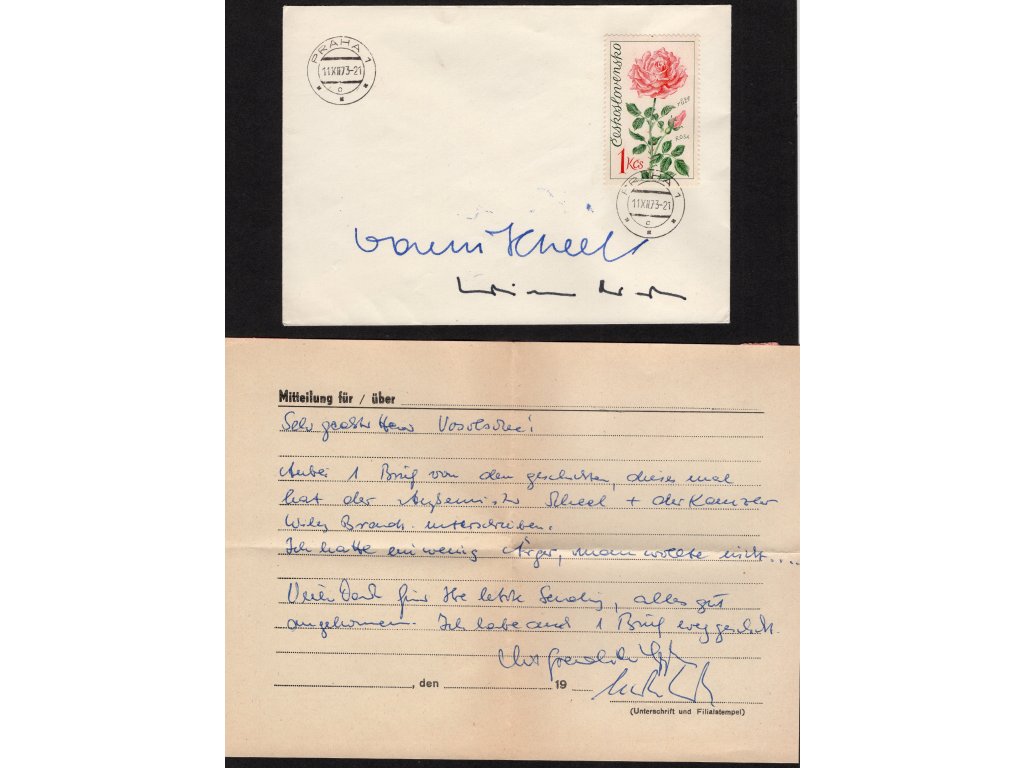 PRAHA 1
11.XII.73-21
c
Československo
RŮŽE
ROSA
1 Kčs
PRAHA 1
11.XII.73-21
c
Scheel
Mitteilung für / über
Sehr geehrter Herr
Anbei 1 Brief von den geschickten, dieses mal
hat der Außenminister Scheel + der Kanzler
Willy Brandt unterschrieben.
Ich hatte ein wenig Ärger, man wollte nicht....
Vielen Dank für Ihre letzte Sendung, alles gut
angekommen. Ich habe auch 1 Brief weggeschickt.
Mit freundlichen
, den 19
(Unterschrift und Filialstempel)